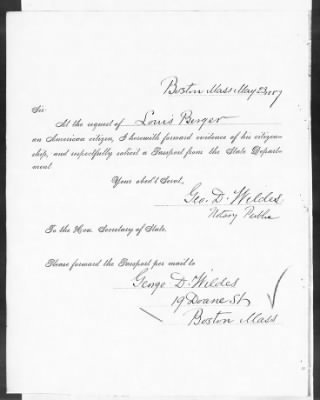 Boston Mass May
Sir
At the request of Louis Berger
an American citizen, I herewith forward evidence of his citizen-
ship, and respectfully solicit a Passport from the State Depart-
ment
Your obed't Servt.
Geo. D. Wildes
Notary Public
To the Hon. Secretary of State.
Please forward the Passport per mail to
George D. Wildes
19 Doane St
Boston Mass